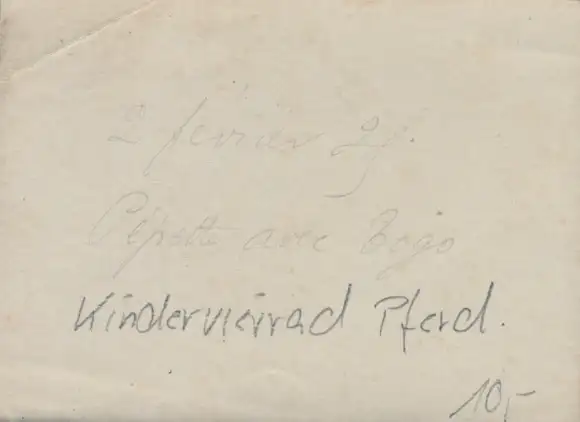 2 février 29.
Pépette avec Togo
Kindervierrad Pferd.
10,-